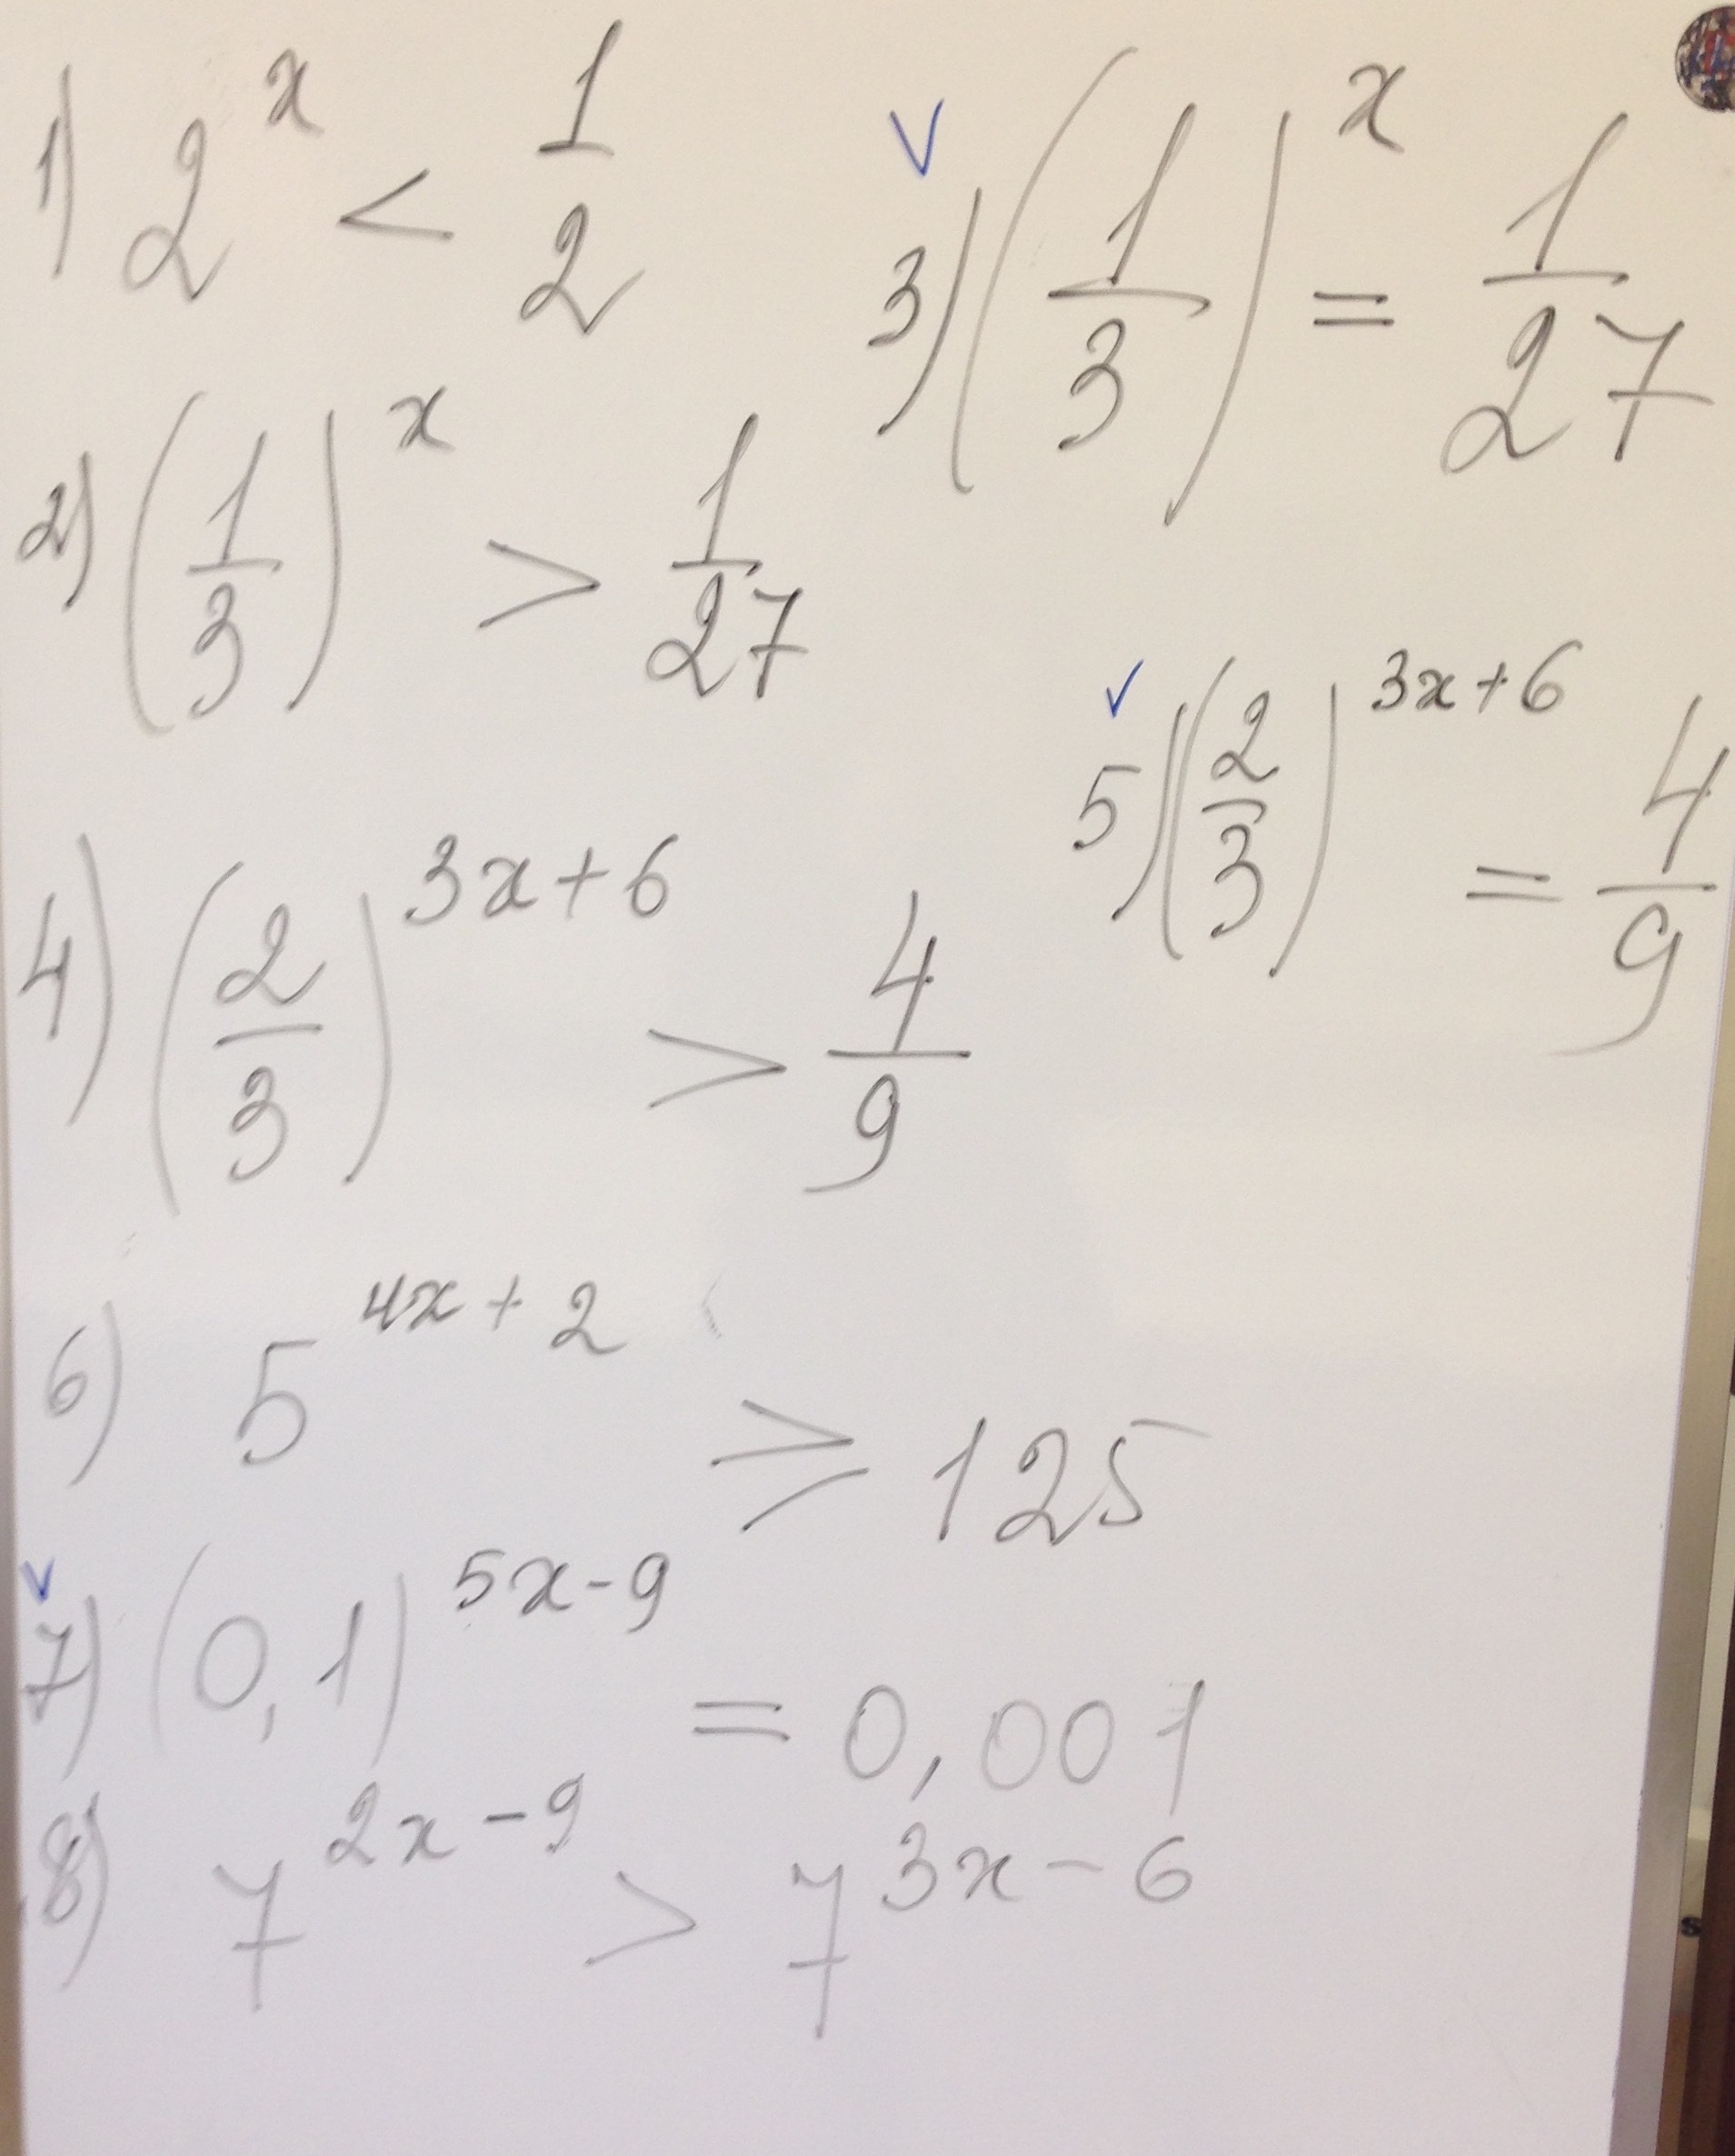 1) 2^x < 1/2
2) (1/3)^x > 1/27
3) (1/3)^x = 1/27
4) (2/3)^(3x+6) > 4/9
5) (2/3)^(3x+6) = 4/9
6) 5^(4x+2) ≥ 125
7) (0,1)^(5x-9) = 0,001
8) 7^(2x-9) > 7^(3x-6)